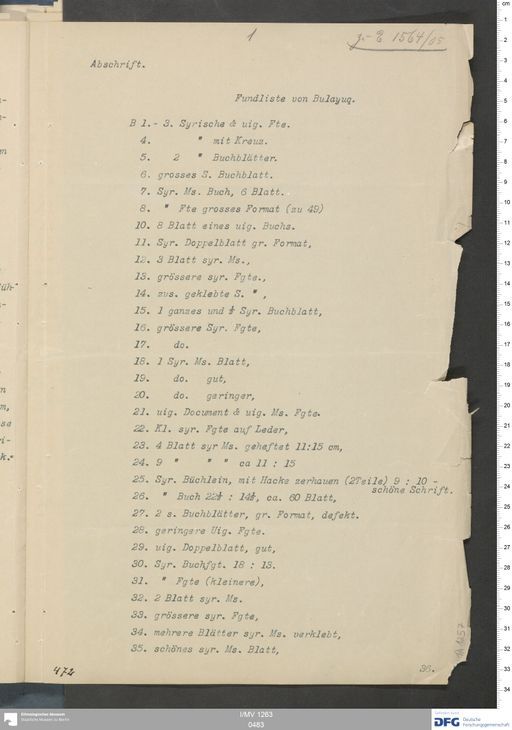 1
Abschrift.
Fundliste von Bulayuq.
B 1.- 3. Syrische & uig. Fte.
4. " mit Kreuz.
5. 2 " Buchblätter.
6. grosses S. Buchblatt.
7. Syr. Ms. Buch, 6 Blatt.
8. " Fte grosses Format (zu 49)
10. 8 Blatt eines uig. Buchs.
11. Syr. Doppelblatt gr. Format,
12. 3 Blatt syr. Ms.,
13. grössere syr. Fgte.,
14. zus. geklebte S. " ,
15. 1 ganzes und ½ Syr. Buchblatt,
16. grössere Syr. Fgte,
17. do.
18. 1 Syr. Ms. Blatt,
19. do. gut,
20. do. geringer,
21. uig. Document & uig. Ms. Fgte.
22. Kl. syr. Fgte auf Leder,
23. 4 Blatt syr Ms. geheftet 11:15 cm,
24. 9 " " " ca 11 : 15
25. Syr. Büchlein, mit Hacke zerhauen (2Teile) 9 : 10 -
schöne Schrift.
26. " Buch 22½ : 14½, ca. 60 Blatt,
27. 2 s. Buchblätter, gr. Format, defekt.
28. geringere Uig. Fgte.
29. uig. Doppelblatt, gut,
30. Syr. Buchfgt. 18 : 13.
31. " Fgte (kleinere),
32. 2 Blatt syr. Ms.
33. grössere syr. Fgte,
34. mehrere Blätter syr. Ms. verklebt,
35. schönes syr. Ms. Blatt,
36.
472
I/MV 1263
0483
Ethnologisches Museum
Staatliche Museen zu Berlin
DFG Deutsche
Forschungsgemeinschaft